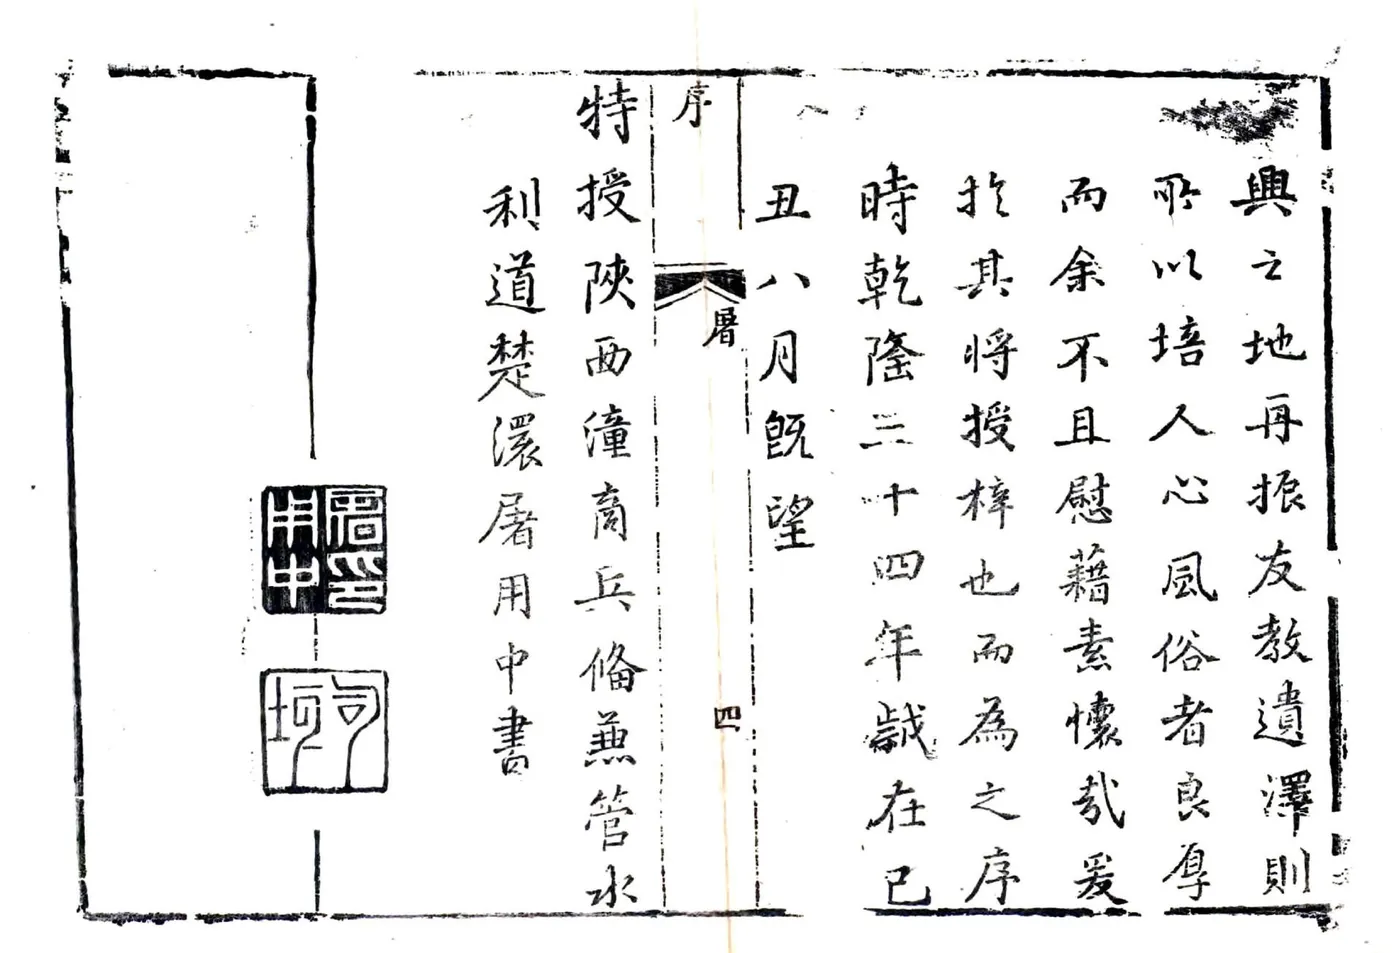 興之地再振友教遺澤則
所以培人心風俗者良厚
而余不且慰藉素懷哉爰
於其將授梓也而為之序
時乾隆三十四年歲在己
丑八月既望
序
屠
四
特授陝西潼商兵備兼管水
利道楚澴屠用中書
屠印
用中
司